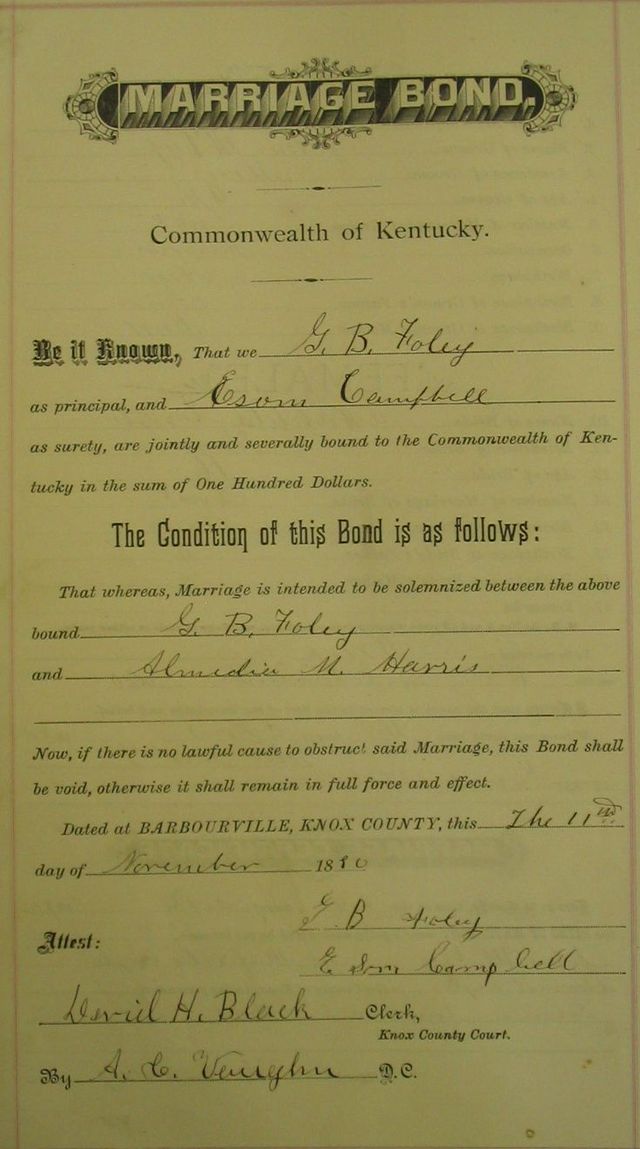 MARRIAGE BOND.
Commonwealth of Kentucky.
Be it Known, That we G. B. Foley
as principal, and Esom Campbell
as surety, are jointly and severally bound to the Commonwealth of Ken-
tucky in the sum of One Hundred Dollars.
The Condition of this Bond is as follows:
That whereas, Marriage is intended to be solemnized between the above
bound G. B. Foley
and Almedia M. Harris
Now, if there is no lawful cause to obstruct said Marriage, this Bond shall
be void, otherwise it shall remain in full force and effect.
Dated at BARBOURVILLE, KNOX COUNTY, this The 11
day of November 18
G. B Foley
Attest:
Esom Campbell
H. Black Clerk,
Knox County Court.
By A. C. Vaughn D.C.